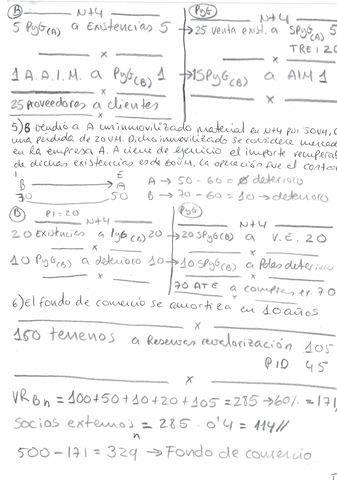 B N+4 PyG N+4
5 PyG(A) a Existencias 5 → 25 Venta exist. a SPyG(A) 5
TRE 20
x
1 A.A.I.M. a PyG(B) 1 → 1SPyG(B) a AIM 1
x
25 proveedores a clientes
5) B vendió a A un inmovilizado material en N+4 por 50UM,
una pérdida de 20UM. Dicho inmovilizado se considera
en la empresa A. A cierre de ejercicio el importe
de dichas existencias es de 60UM. La operación fue al
I E
B → A A → 50-60= deterioro
70 50 B → 70-60=10 → deterioro
B PI=20 N+4 PyG N+4
20 Existencias a PyG(B) 20 → 20SPyG(B) a V.E. 20
x
10 PyG(B) a deterioro 10 → 10 SPyG(B) a Pdas deterioro
x
70 ATE a compras ex. 70
6) El fondo de comercio se amortiza en 10 años
x
150 terrenos a Reservas revalorización 105
PID 45
x
VRBn = 100+50+10+20+105 = 285 → 60% = 171,
Socios externos n = 285 · 0'4 = 114//
500-171 = 329 → Fondo de comercio